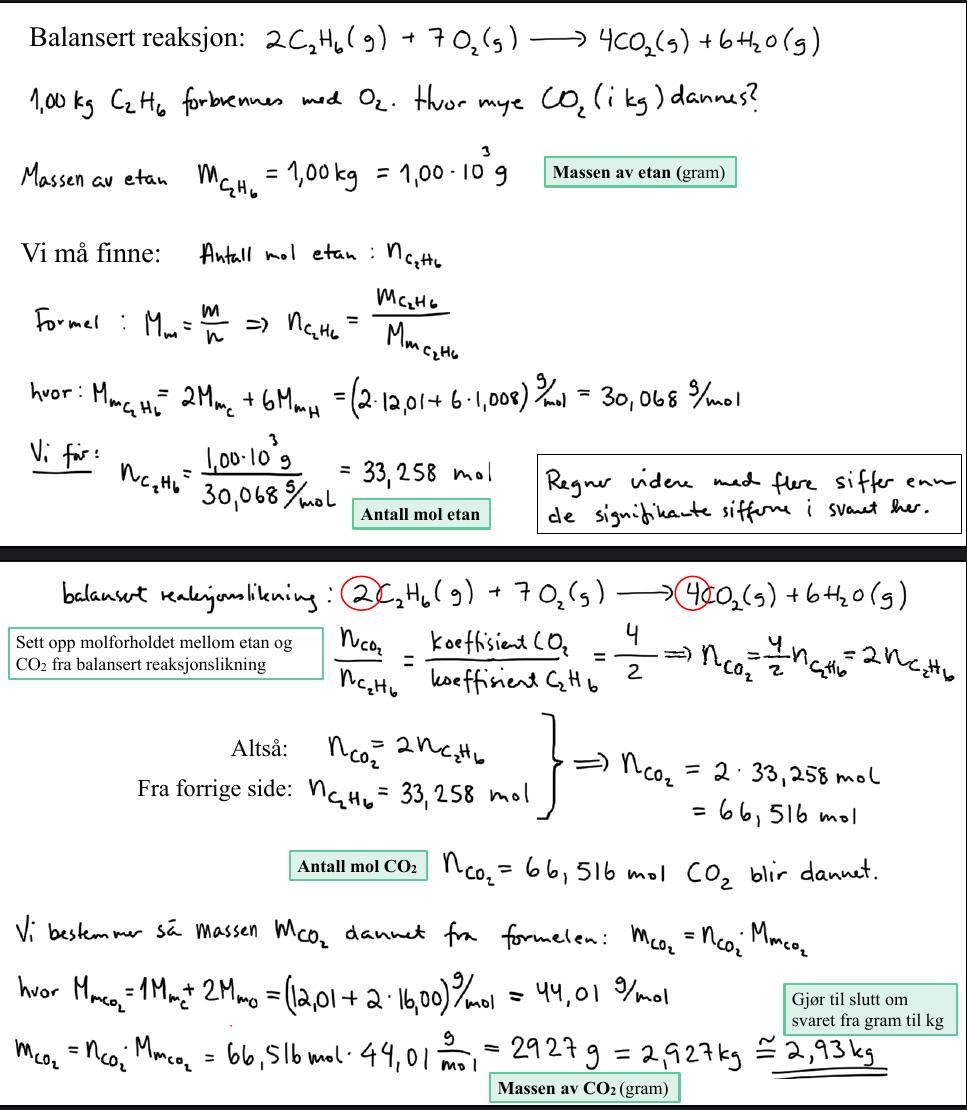 Balansert reaksjon: 2C₂H₆(g) + 7O₂(g) ⟶ 4CO₂(g) + 6H₂O(g)
1,00 kg C₂H₆ forbrennes med O₂. Hvor mye CO₂ (i kg) dannes?
Massen av etan m_C₂H₆ = 1,00 kg = 1,00 · 10³ g
Massen av etan (gram)
Vi må finne: Antall mol etan : n_C₂H₆
Formel : Mₘ = m/n ⟹ n_C₂H₆ = m_C₂H₆ / Mₘ C₂H₆
hvor: Mₘ C₂H₆ = 2Mₘ C + 6Mₘ H = (2·12,01 + 6·1,008) g/mol = 30,068 g/mol
Vi får: n_C₂H₆ = 1,00·10³ g / 30,068 g/mol = 33,258 mol
Antall mol etan
Regner videre med flere siffer enn
de signifikante sifferne i svaret her.
balansert reaksjonslikning : 2C₂H₆(g) + 7O₂(g) ⟶ 4CO₂(g) + 6H₂O(g)
Sett opp molforholdet mellom etan og
CO₂ fra balansert reaksjonslikning
n_CO₂ / n_C₂H₆ = koeffisient CO₂ / koeffisient C₂H₆ = 4/2 ⟹ n_CO₂ = 4/2 n_C₂H₆ = 2n_C₂H₆
Altså: n_CO₂ = 2n_C₂H₆
Fra forrige side: n_C₂H₆ = 33,258 mol
⟹ n_CO₂ = 2 · 33,258 mol
= 66,516 mol
Antall mol CO₂
n_CO₂ = 66,516 mol CO₂ blir dannet.
Vi bestemmer så massen m_CO₂ dannet fra formelen: m_CO₂ = n_CO₂ · Mₘ CO₂
hvor Mₘ CO₂ = 1Mₘ C + 2Mₘ O = (12,01 + 2·16,00) g/mol = 44,01 g/mol
Gjør til slutt om
svaret fra gram til kg
m_CO₂ = n_CO₂ · Mₘ CO₂ = 66,516 mol · 44,01 g/mol = 2927 g = 2,927 kg ≅ 2,93 kg
Massen av CO₂ (gram)